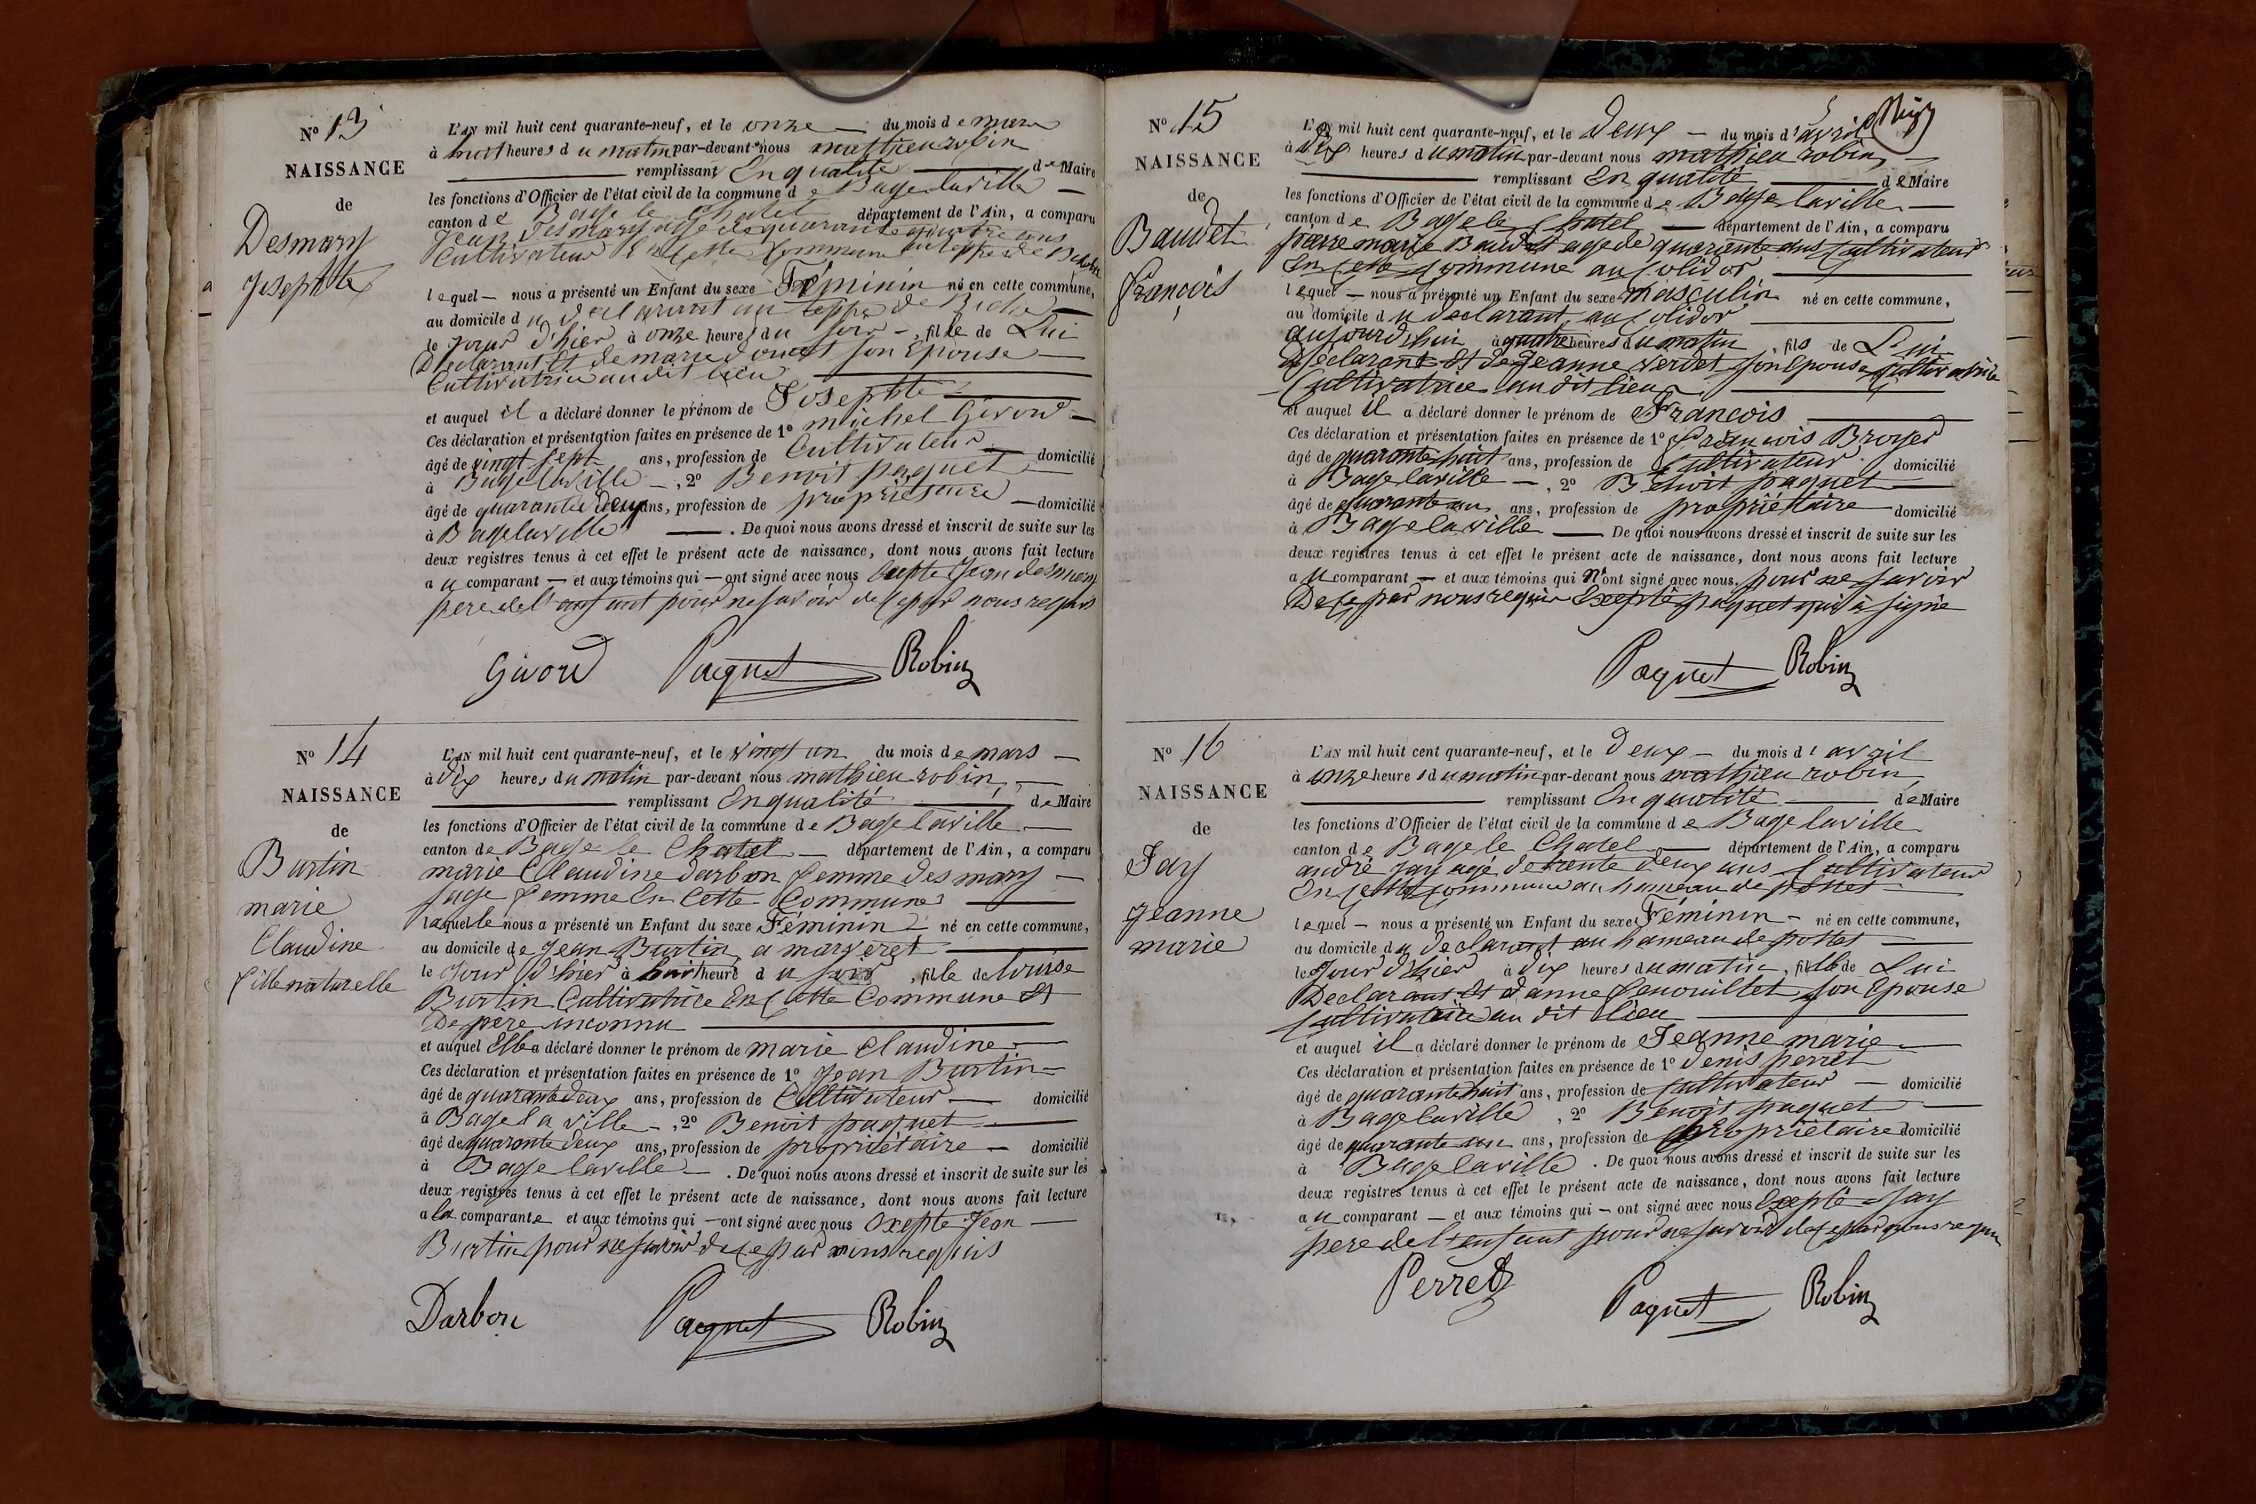 N° 13
NAISSANCE
de
Desmary
Josephte
L'AN mil huit cent quarante-neuf, et le onze du mois de mars
à huit heures du matin par-devant nous mathieu robin
remplissant En qualité de Maire
les fonctions d'Officier de l'état civil de la commune de Bage laville
canton de Bage le Chatel département de l'Ain, a comparu
Jean Desmary agé de quarante quatre ans
Cultivateur En Cette Commune au teppe de Biche
lequel — nous a présenté un Enfant du sexe Féminin né en cette commune,
au domicile du declarant au teppe de Biche
le jour d'hier à onze heures du soir, fille de Lui
Declarant Et de marie donct son Epouse
Cultivatrice au dit lieu
et auquel il a déclaré donner le prénom de Josephte
Ces déclaration et présentation faites en présence de 1° michel Givord
âgé de vingt sept ans, profession de Cultivateur domicilié
à Bage laville, 2° Benoit paquet
âgé de quarante deux ans, profession de propriétaire domicilié
à Bage laville. De quoi nous avons dressé et inscrit de suite sur les
deux registres tenus à cet effet le présent acte de naissance, dont nous avons fait lecture
au comparant — et aux témoins qui — ont signé avec nous Exepté Jean desmary
pere de l'enfant pour ne savoir de ce par nous requis
Givord Paquet Robin
N° 14
NAISSANCE
de
Burtin
marie
Claudine
fille naturelle
L'AN mil huit cent quarante-neuf, et le vingt un du mois de mars
à dix heures du matin par-devant nous mathieu robin,
remplissant En qualité de Maire
les fonctions d'Officier de l'état civil de la commune de Bage laville
canton de Bage le Chatel département de l'Ain, a comparu
marie Claudine darbon femme desmary
sage femme En Cette Commune
laquelle nous a présenté un Enfant du sexe Féminin né en cette commune,
au domicile de Jean Burtin, a marveret
le jour d'hier à huit heures du soir, fille de louise
Burtin Cultivatrice En Cette Commune Et
De pere inconnu
et auquel Elle a déclaré donner le prénom de marie Claudine
Ces déclaration et présentation faites en présence de 1° Jean Burtin
âgé de quarante deux ans, profession de Cultivateur domicilié
à Bage la ville, 2° Benoit paquet
âgé de quarante deux ans, profession de propriétaire domicilié
à Bage laville. De quoi nous avons dressé et inscrit de suite sur les
deux registres tenus à cet effet le présent acte de naissance, dont nous avons fait lecture
a la comparante et aux témoins qui — ont signé avec nous Exepté Jean
Burtin pour ne savoir de ce par nous requis
Darbon Paquet Robin
N° 15
NAISSANCE
de
Baudet
françois
L'AN mil huit cent quarante-neuf, et le deux du mois d'avril
à dix heures du matin par-devant nous mathieu robin,
remplissant En qualité de Maire
les fonctions d'Officier de l'état civil de la commune de Bage laville
canton de Bage le Chatel département de l'Ain, a comparu
pierre marie Baudet agé de quarante ans Cultivateur
En Cette Commune au Colidor
lequel — nous a présenté un Enfant du sexe masculin né en cette commune,
au domicile du declarant, au Colidor
aujourdhui à quatre heures du matin, fils de Lui
Declarant Et de Jeanne Verdet son Epouse Cultivatrice
Cultivatrice au dit lieu
et auquel il a déclaré donner le prénom de François
Ces déclaration et présentation faites en présence de 1° François Broyer
âgé de quarante huit ans, profession de Cultivateur domicilié
à Bage laville, 2° Benoit paquet
âgé de quarante un ans, profession de propriétaire domicilié
à Bage la ville De quoi nous avons dressé et inscrit de suite sur les
deux registres tenus à cet effet le présent acte de naissance, dont nous avons fait lecture
au comparant — et aux témoins qui N'ont signé avec nous. pour ne savoir
De ce par nous requis Exepté paquet qui à signé
Paquet Robin
N° 16
NAISSANCE
de
Jay
jeanne
marie
L'AN mil huit cent quarante-neuf, et le deux du mois d'avril
à onze heures du matin par-devant nous mathieu robin,
remplissant En qualité de Maire
les fonctions d'Officier de l'état civil de la commune de Bage laville
canton de Bage le Chatel département de l'Ain, a comparu
andré Jay agé de trente deux ans Cultivateur
En Cette Commune au hameau de pottes
lequel — nous a présenté un Enfant du sexe Féminin né en cette commune,
au domicile du declarant au hameau de pottes
le Jour d'hier à dix heures du matin, fille de Lui
Declarant Et d'anne fenouillet son Epouse
Cultivatrice au dit lieu
et auquel il a déclaré donner le prénom de Jeanne marie
Ces déclaration et présentation faites en présence de 1° denis perret
âgé de quarante huit ans, profession de Cultivateur domicilié
à Bage laville, 2° Benoit paquet
âgé de quarante un ans, profession de propriétaire domicilié
à Bage laville. De quoi nous avons dressé et inscrit de suite sur les
deux registres tenus à cet effet le présent acte de naissance, dont nous avons fait lecture
au comparant — et aux témoins qui — ont signé avec nous Exepté Jay
pere de l'enfant pour ne savoir de ce par nous requis
Perret Paquet Robin